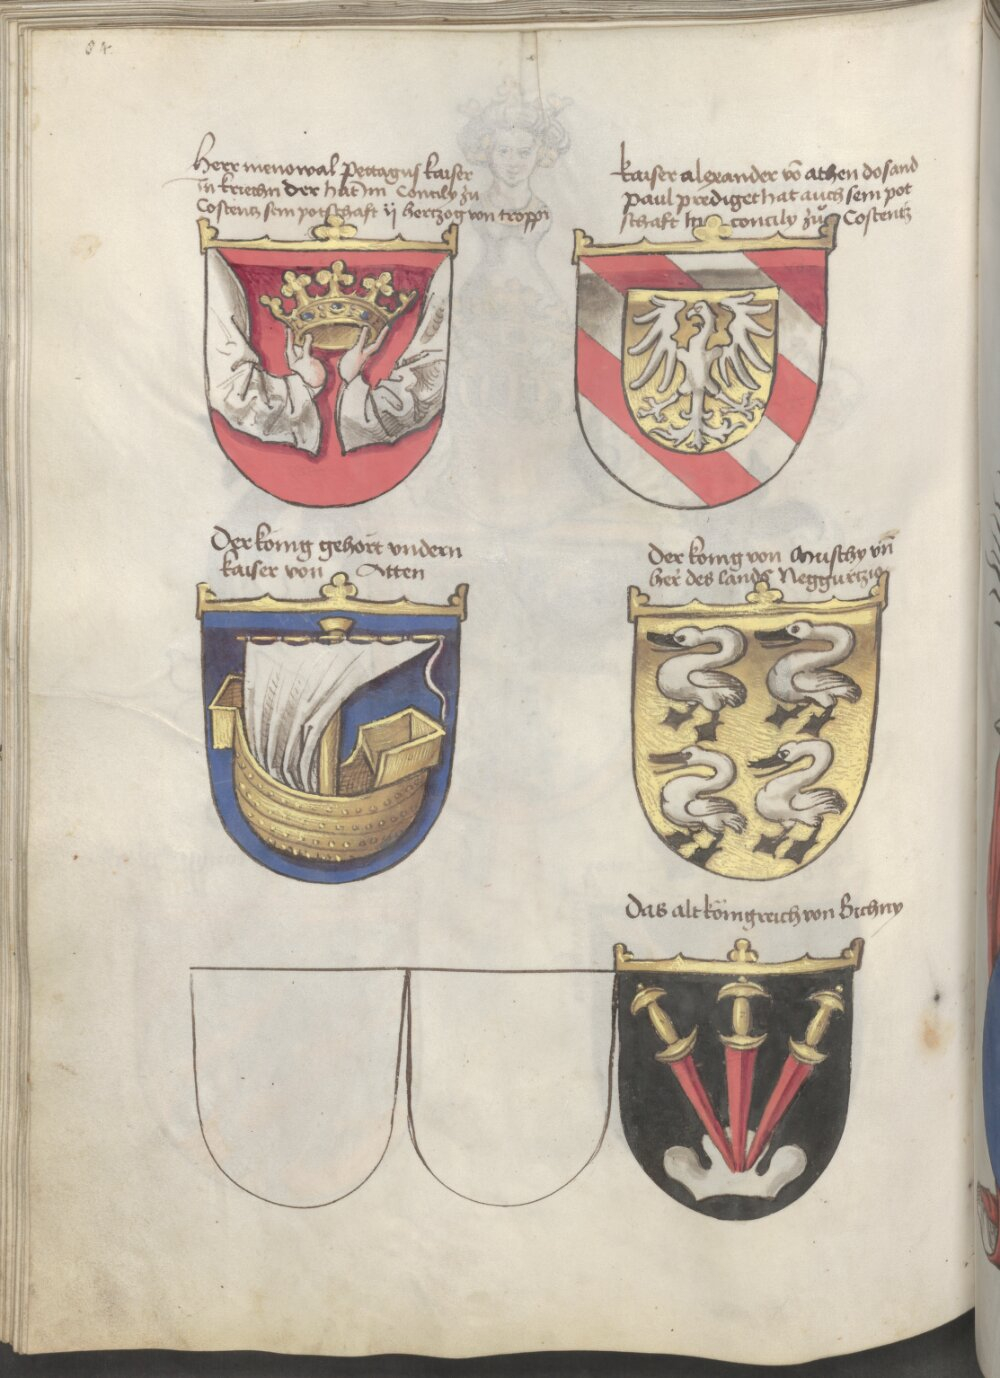 84
Herr menowal pettagus kaiser
in kriechn der hat im Concily zu
Costentz sein potschaft ij hertzog von troppi
kaiser alexander vō athen do sand
paul prediget hat auch sein pot
schaft Im concily zů Costentz
Der konig gehört vndern
kaiser von Otten
Der konig von Muschy vn̄
her des lands Neggurtzig
Das alt königreich von Bichny